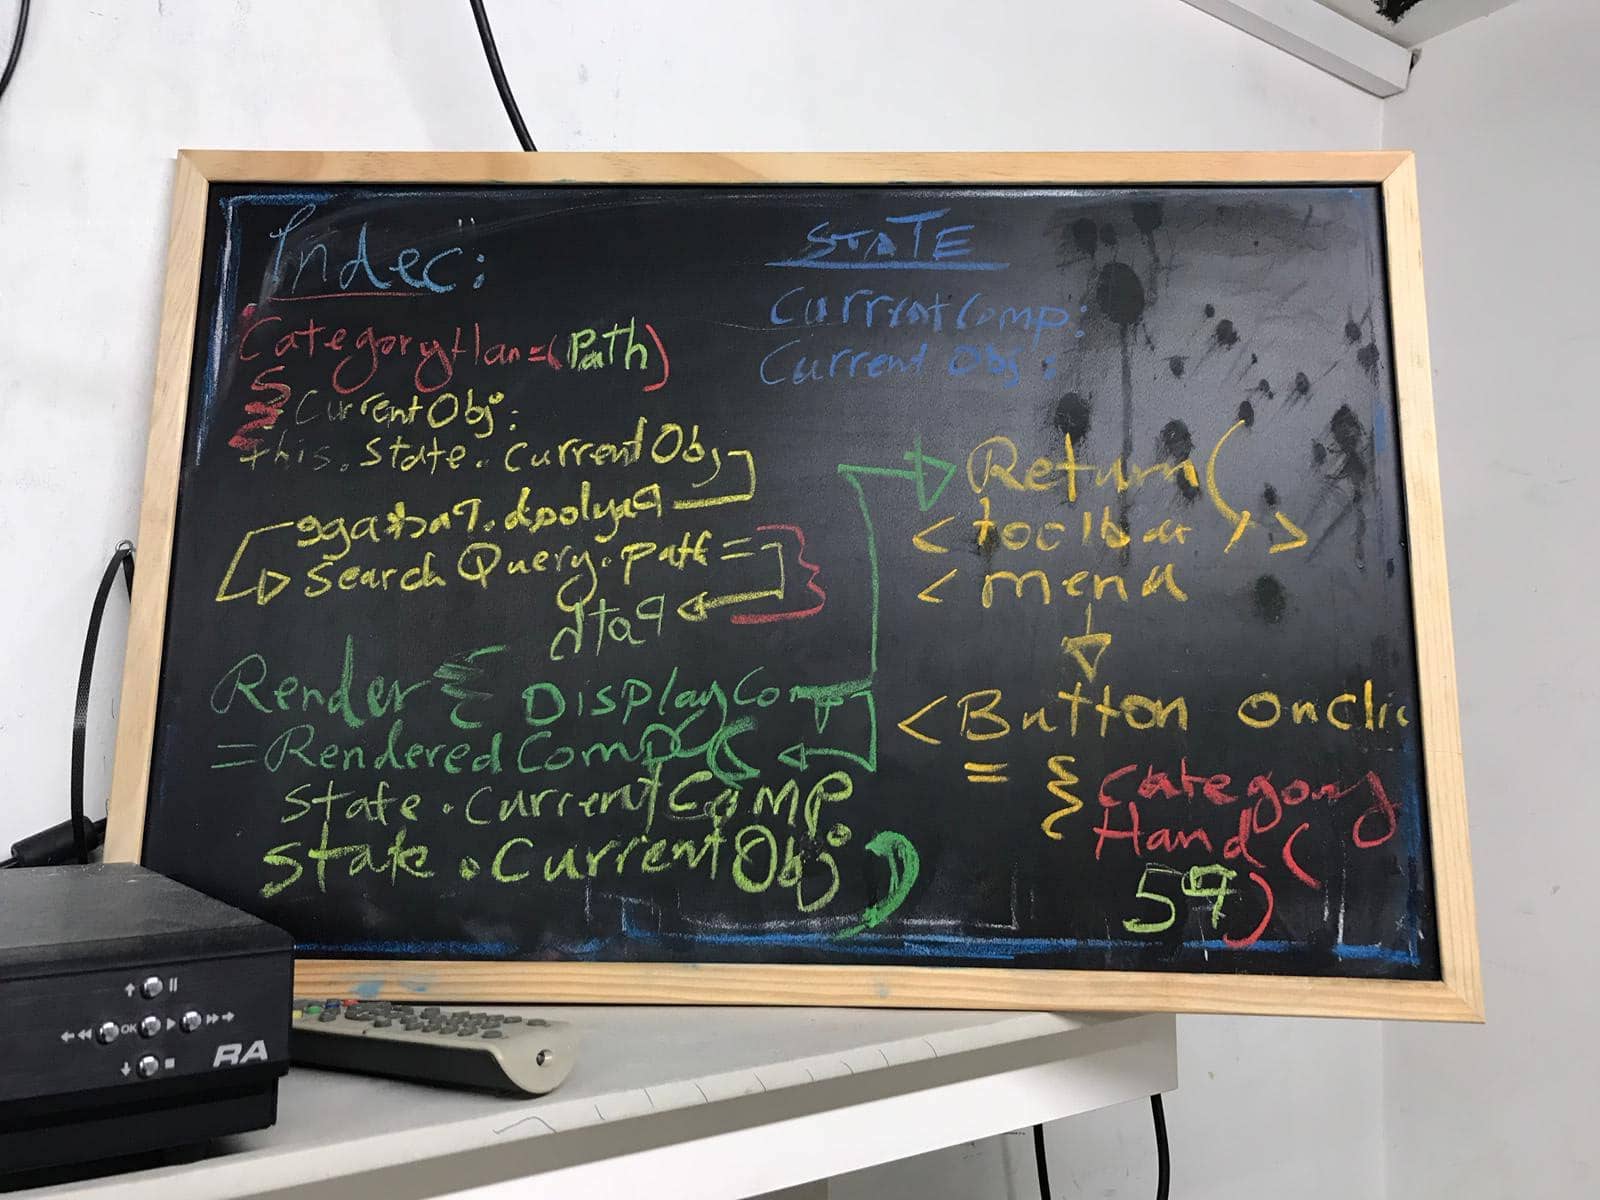 Index:
CategoryHan=(Path)
{ CurrentObj:
this.state.currentObj
Search Query.path =
Render { DisplayComp
=RenderedComp (
state.currentComp.
state.CurrentObj )
STATE
CurrentComp:
Current Obj:
Return (
<toolbar />
<menu
<Button onclic
= { Category
Hand (
)
OK
RA